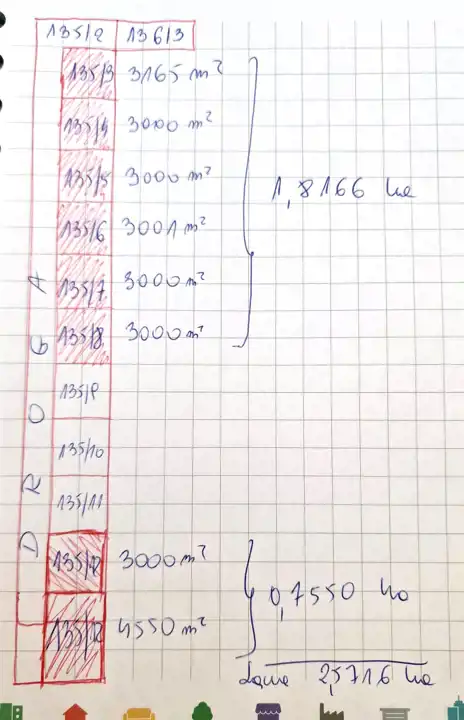 135/2 136/3
135/3 3165 m²
135/4 3000 m²
135/5 3000 m²
1,8166 ha
135/6 3001 m²
135/7 3000 m²
135/8 3000 m²
135/9
135/10
135/11
DROGA
135/12 3000 m²
0,7550 ha
4550 m²
2,5716 ha